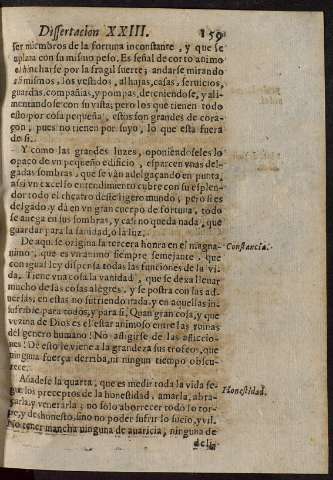 Dissertacion XXIII. 159
ser miembros de la fortuna inconstante, y que se
aplata con su mismo peso. Es señal de corto animo
el hincharse por la fragil suerte; andarse mirando
à si mismos, los vestidos, alhajas, casas, servicios,
guardas, compañias, y pompas, deteniendose, y ali-
mentandose con su vista; pero los que tienen todo
esto por cosa pequeña, estos son grandes de cora-
çon, pues no tienen por suyo, lo que està fuera
de si.
Y como las grandes luzes, oponiendoseles lo
opaco de vn pequeño edificio, esparcen vnas del-
gadas sombras, que se vàn adelgaçando en punta,
assi vn excelso entendimiento cubre con su esplen-
dor todo el theatro deste ligero mundo; pero si es
delgado, y dà en vn gran cuerpo de fortuna, todo
se anega en sus sombras, y casi no queda nada, que
guardar para la sanidad, ò la luz.
De aqui se origina la tercera honra en el magna-
nimo, que es vn animo siempre semejante, que
con igual ley dispensa todas las funciones de la vi-
da. Tiene vna cosa la vanidad, que se dexa llenar
mucho de las cosas alegres, y se postra con las ad-
uersas, en estas no sufriendo nada, y en aquellas in-
sufrible para todos, y para si. Quan gran cosa, y que
vezina de Dios es el estar animoso entre las ruinas
del genero humano! No afligirse de las afliccio-
nes! De esto le viene à la grandeza sus trofeos, que
ninguna fuerça derriba, ni ningun tiempo obscu-
rece.
Añadese la quarta, que es medir toda la vida se-
gun los preceptos de la honestidad, amarla, abra-
çarla, y venerarla; no solo aborrecer todo lo tor-
pe, y deshonesto, sino no poder sufrir lo sucio, y vil.
No tener mancha ninguna de auaricia, ninguna de
deli-
Constancia.
Honestidad.